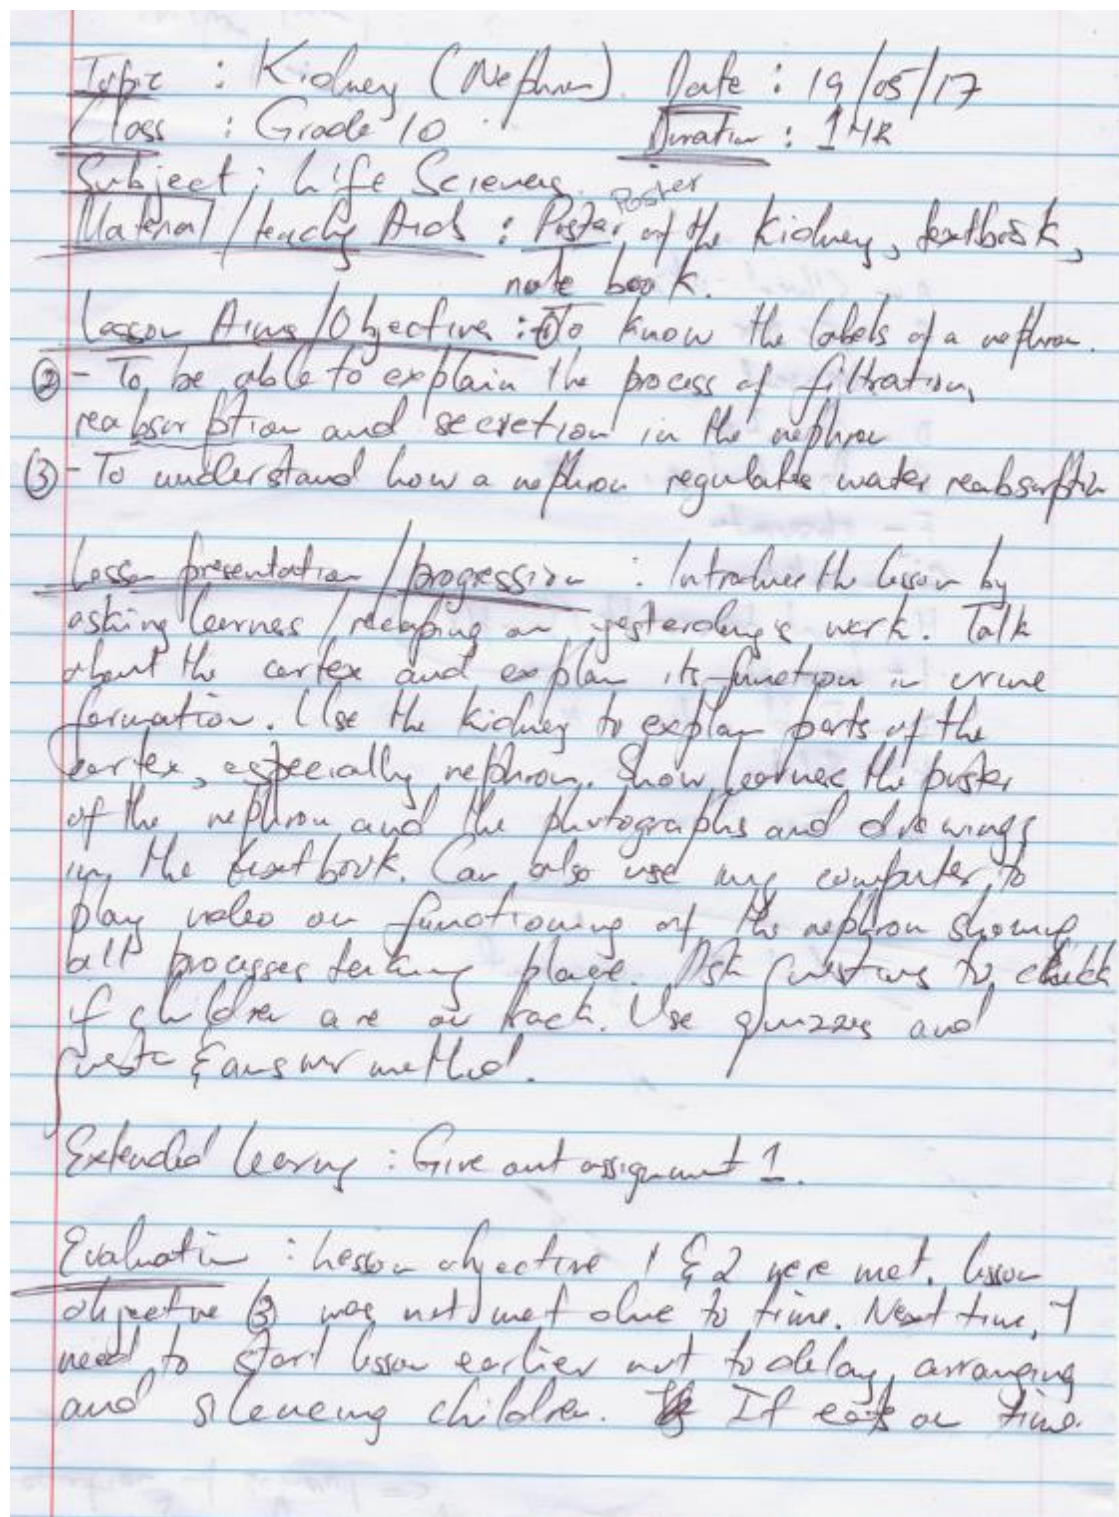 Topic : Kidney (Nephron). Date : 19/05/17
Class : Grade 10 Duration : 1 HR
Subject : Life Sciences. Poster
Material / teaching Aids : Poster of the Kidney, textbook,
note book.
Lesson Aims / Objective : ① To know the labels of a nephron.
② - To be able to explain the process of filtration,
reabsorption and secretion in the nephron
③ - To understand how a nephron regulates water reabsorption
Lesson presentation / progression : Introduce the lesson by
asking learners / recaping on yesterday's work. Talk
about the cortex and explain its function in urine
formation. Use the kidney to explain parts of the
cortex, especially nephron. Show learners the poster
of the nephron and the photographs and drawings
in the textbook. Can also use my computer to
play video on functioning of the nephron showing
all processes taking place. Ask questions to check
if children are on track. Use quizzes and
& answer method.
Extended learning : Give out assignment 1.
Evaluation : Lesson objective 1 & 2 were met. Lesson
objective (3) was not met due to time. Next time, I
need to start lesson earlier not to delay arranging
and silencing children. If on time.